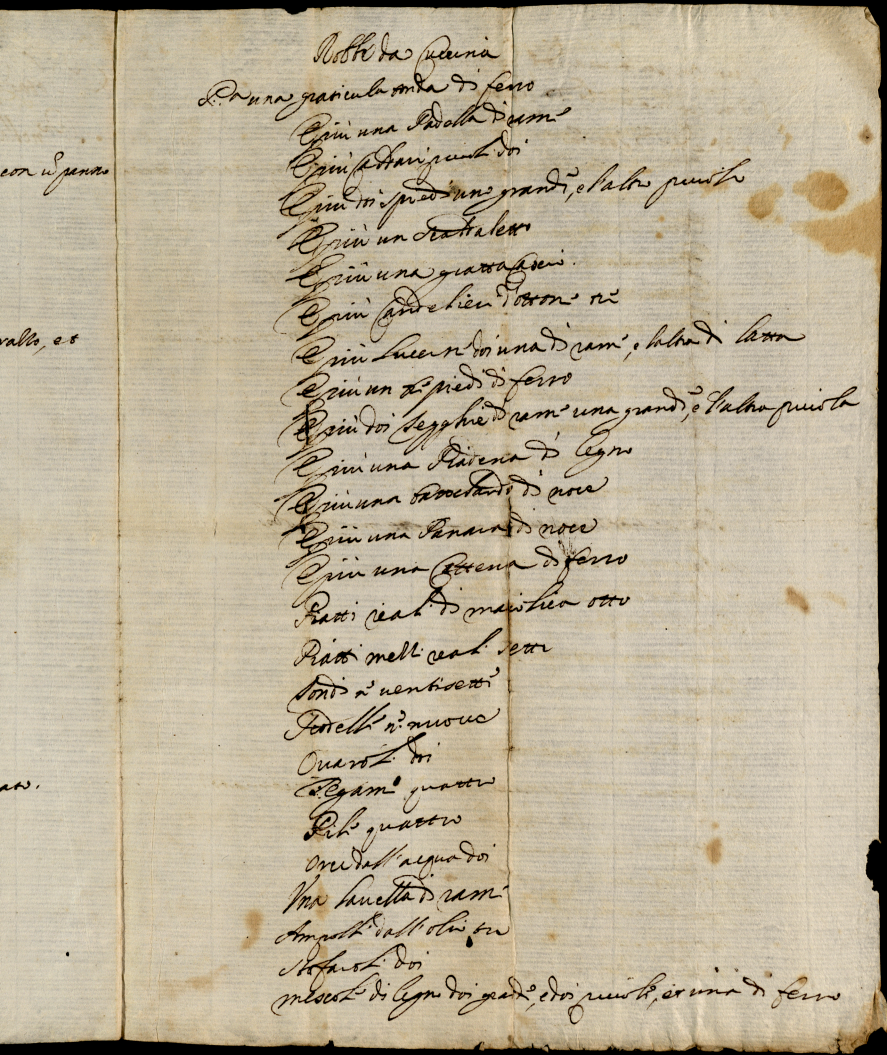 con un panno
vallo, et
Robbe da Cucina
P.a una graticula tonda di ferro
E più una Padella di rame
E più Cattari piccoli doi
E più doi spiedi uno grande, e l'altro piccolo
E più un
E più una gratta Cascio
E più Candelieri d'ottone tre
E più Lucerne doi una di rame, e l'altra di latta
E più un tre piedi di ferro
E più doi Segghie di rame una grande, e l'altra piccola
E più una Piadena di legno
E più una di noce
E più una Panara di noce
E più una Cattena di ferro
Piatti reali di maiolica otto
Piatti mezzi reali sette
Tondi n.o ventisette
n.o nuove
doi
Tegami quattro
Pile quattro
Orci dall'acqua doi
Una di rame
Ampolle dall'olio tre
Stofaroli doi
mescole di legno doi grande, e doi piccole, et una di ferro